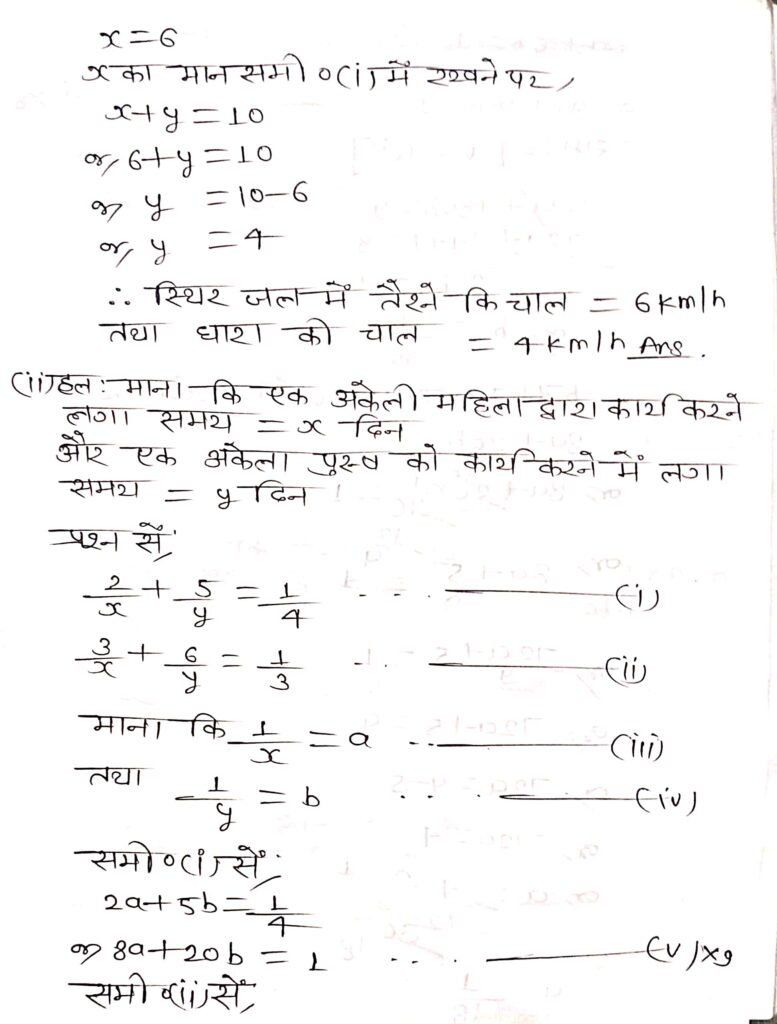 x = 6
x का मान समी०(i) में रखने पर,
x + y = 10
or, 6 + y = 10
or, y = 10 - 6
or, y = 4
∴ स्थिर जल में तैरने कि चाल = 6 km/h
तथा धारा की चाल = 4 km/h Ans.
(ii) हल: माना कि एक अकेली महिला द्वारा कार्य करने
लगा समय = x दिन
और एक अकेला पुरुष को कार्य करने में लगा
समय = y दिन
प्रश्न सें,
2/x + 5/y = 1/4 ... (i)
3/x + 6/y = 1/3 .. (ii)
माना कि 1/x = a .. (iii)
तथा 1/y = b .. . . (iv)
समी०(i) सें,
2a + 5b = 1/4
or, 8a + 20b = 1 .. .. (v) x9
समी०(ii) सें,